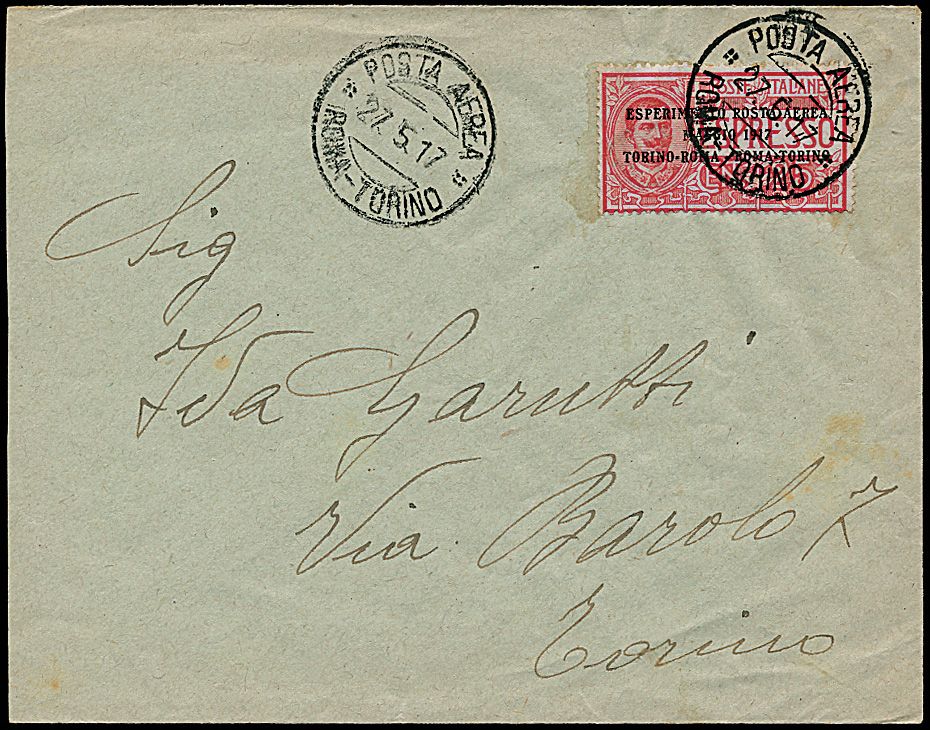 " POSTA AEREA "
27.5.17
ROMA-TORINO
" POSTA AEREA "
ROMA-TORINO
POSTE ITALIANE
ESPERIMENTO POSTA AEREA
MAGGIO 1917
TORINO-ROMA · ROMA-TORINO
ESPRESSO
Sig
Ida Garutti
Via Barolo 7
Torino